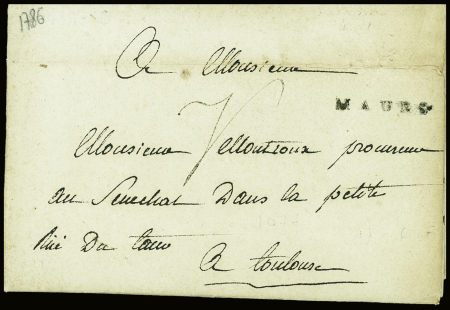 1786
A Monsieur
MAURS
Monsieur Moutroux procureur
au Senechal Dans la petite
Rue Du
A toulouse